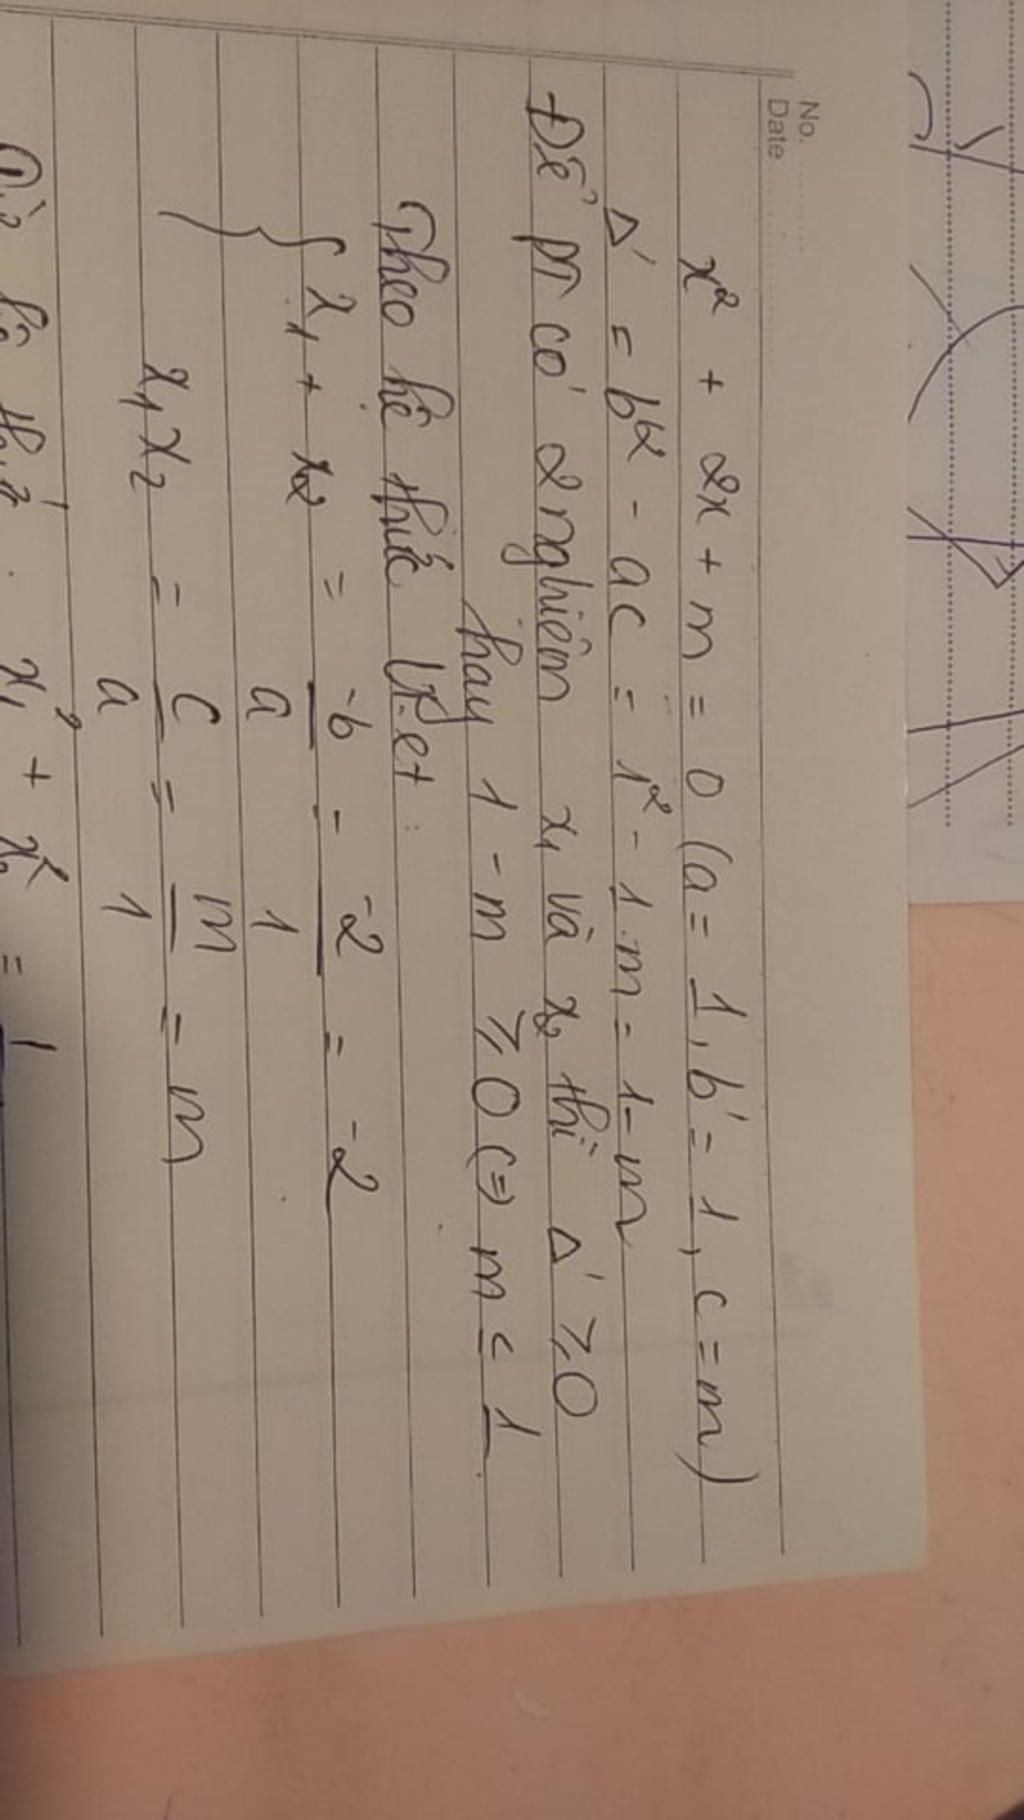 No.
Date
x² + 2x + m = 0 (a = 1, b' = 1, c = m)
Δ' = b'² - ac = 1² - 1.m = 1 - m
Để pt có 2 nghiệm x₁ và x₂ thì Δ' ≥ 0
hay 1 - m ≥ 0 (=> m ≤ 1
Theo hệ thức Vi-et:
{ x₁ + x₂ = -b/a = -2/1 = -2
x₁x₂ = c/a = m/1 = m
hệ thức: x₁² + x₂² = 1